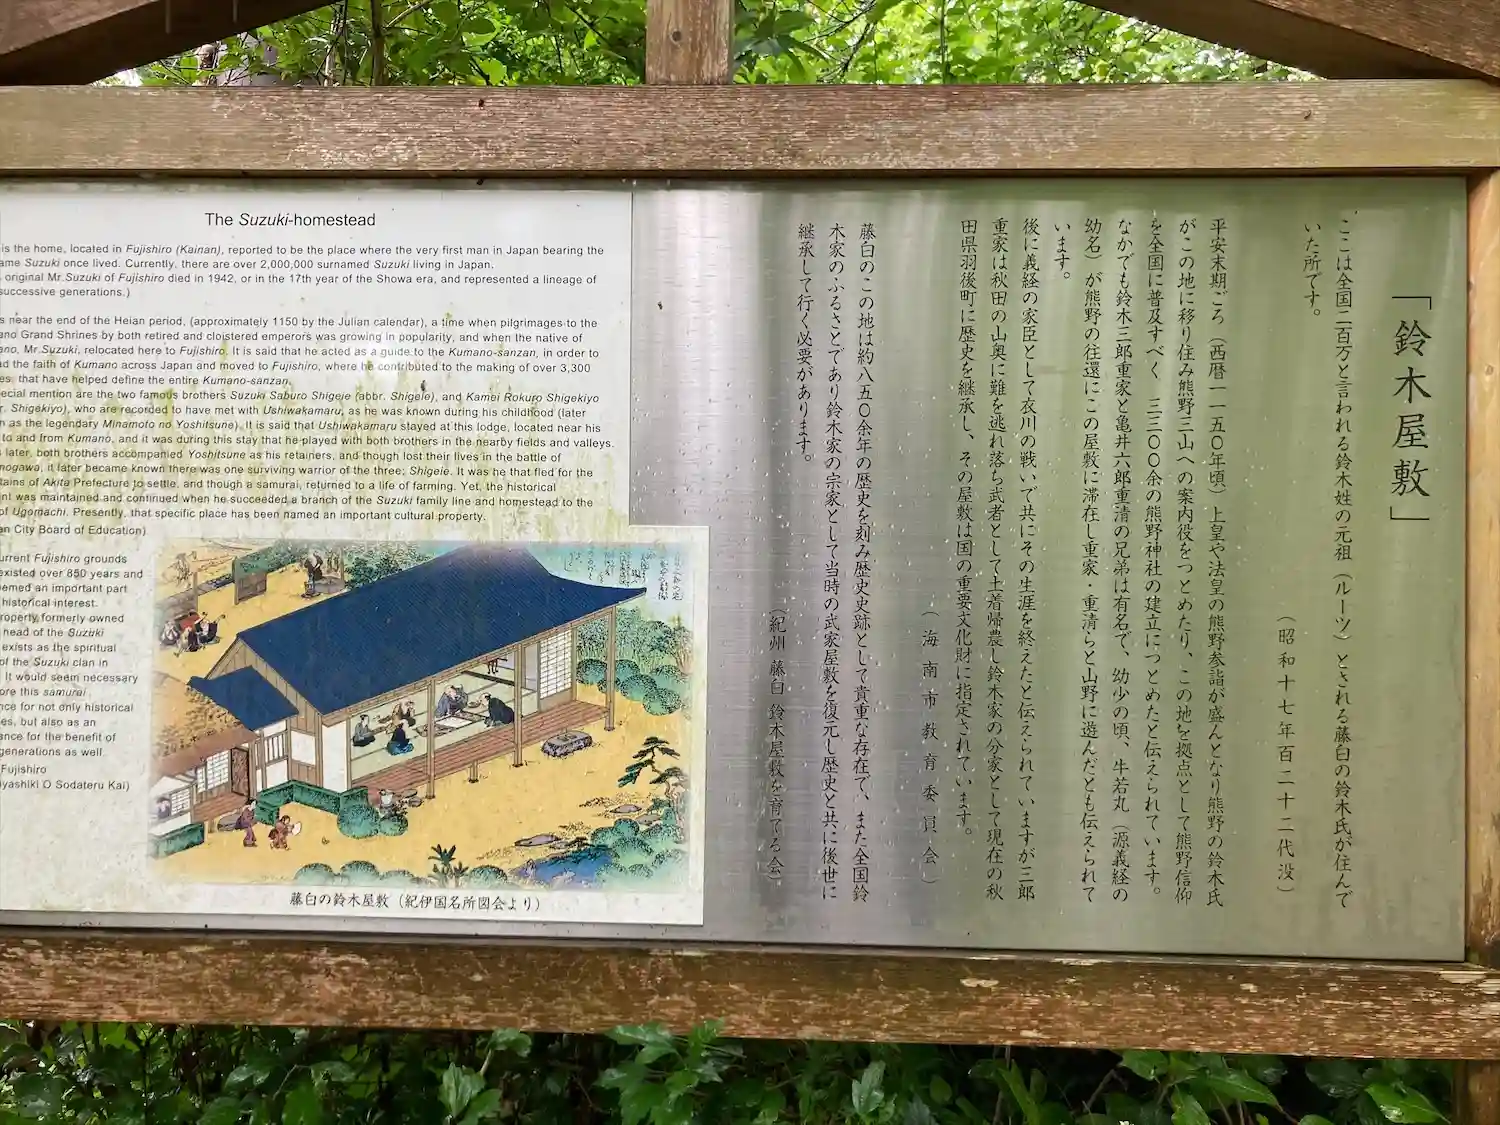 The Suzuki-homestead
is the home, located in Fujishiro (Kainan), reported to be the place where the very first man in Japan bearing the
ame Suzuki once lived. Currently, there are over 2,000,000 surnamed Suzuki living in Japan.
original Mr.Suzuki of Fujishiro died in 1942, or in the 17th year of the Showa era, and represented a lineage of
successive generations.)
s near the end of the Heian period, (approximately 1150 by the Julian calendar), a time when pilgrimages to the
ano Grand Shrines by both retired and cloistered emperors was growing in popularity, and when the native of
ano, Mr.Suzuki, relocated here to Fujishiro. It is said that he acted as a guide to the Kumano-sanzan, in order to
ad the faith of Kumano across Japan and moved to Fujishiro, where he contributed to the making of over 3,300
es, that have helped define the entire Kumano-sanzan.
ecial mention are the two famous brothers Suzuki Saburo Shigeie (abbr. Shigeie), and Kamei Rokuro Shigekiyo
r. Shigekiyo), who are recorded to have met with Ushiwakamaru, as he was known during his childhood (later
n as the legendary Minamoto no Yoshitsune). It is said that Ushiwakamaru stayed at this lodge, located near his
to and from Kumano, and it was during this stay that he played with both brothers in the nearby fields and valleys.
later, both brothers accompanied Yoshitsune as his retainers, and though lost their lives in the battle of
mogawa, it later became known there was one surviving warrior of the three; Shigeie. It was he that fled for the
tains of Akita Prefecture to settle, and though a samurai, returned to a life of farming. Yet, the historical
nt was maintained and continued when he succeeded a branch of the Suzuki family line and homestead to the
of Ugomachi. Presently, that specific place has been named an important cultural property.
an City Board of Education)
urrent Fujishiro grounds
existed over 850 years and
emed an important part
historical interest.
roperty formerly owned
head of the Suzuki
exists as the spiritual
of the Suzuki clan in
It would seem necessary
ore this samurai
nce for not only historical
es, but also as an
ance for the benefit of
generations as well.
Fujishiro
iyashiki O Sodateru Kai)
藤白の鈴木屋敷（紀伊国名所図会より）
「鈴木屋敷」
ここは全国二百万と言われる鈴木姓の元祖（ルーツ）とされる藤白の鈴木氏が住んで
いた所です。
（昭和十七年百二十二代没）
平安末期ごろ（西暦一一五〇年頃）上皇や法皇の熊野参詣が盛んとなり熊野の鈴木氏
がこの地に移り住み熊野三山への案内役をつとめたり、この地を拠点として熊野信仰
を全国に普及すべく 三三〇〇余の熊野神社の建立につとめたと伝えられています。
なかでも鈴木三郎重家と亀井六郎重清の兄弟は有名で、幼少の頃、牛若丸（源義経の
幼名）が熊野の往還にこの屋敷に滞在し重家・重清らと山野に遊んだとも伝えられて
います。
後に義経の家臣として衣川の戦いで共にその生涯を終えたと伝えられていますが三郎
重家は秋田の山奥に難を逃れ落ち武者として土着帰農し鈴木家の分家として現在の秋
田県羽後町に歴史を継承し、その屋敷は国の重要文化財に指定されています。
（海南市教育委員会）
藤白のこの地は約八五〇余年の歴史を刻み歴史史跡として貴重な存在で、また全国鈴
木家のふるさとであり鈴木家の宗家として当時の武家屋敷を復元し歴史と共に後世に
継承して行く必要があります。
（紀州 藤白 鈴木屋敷を育てる会）